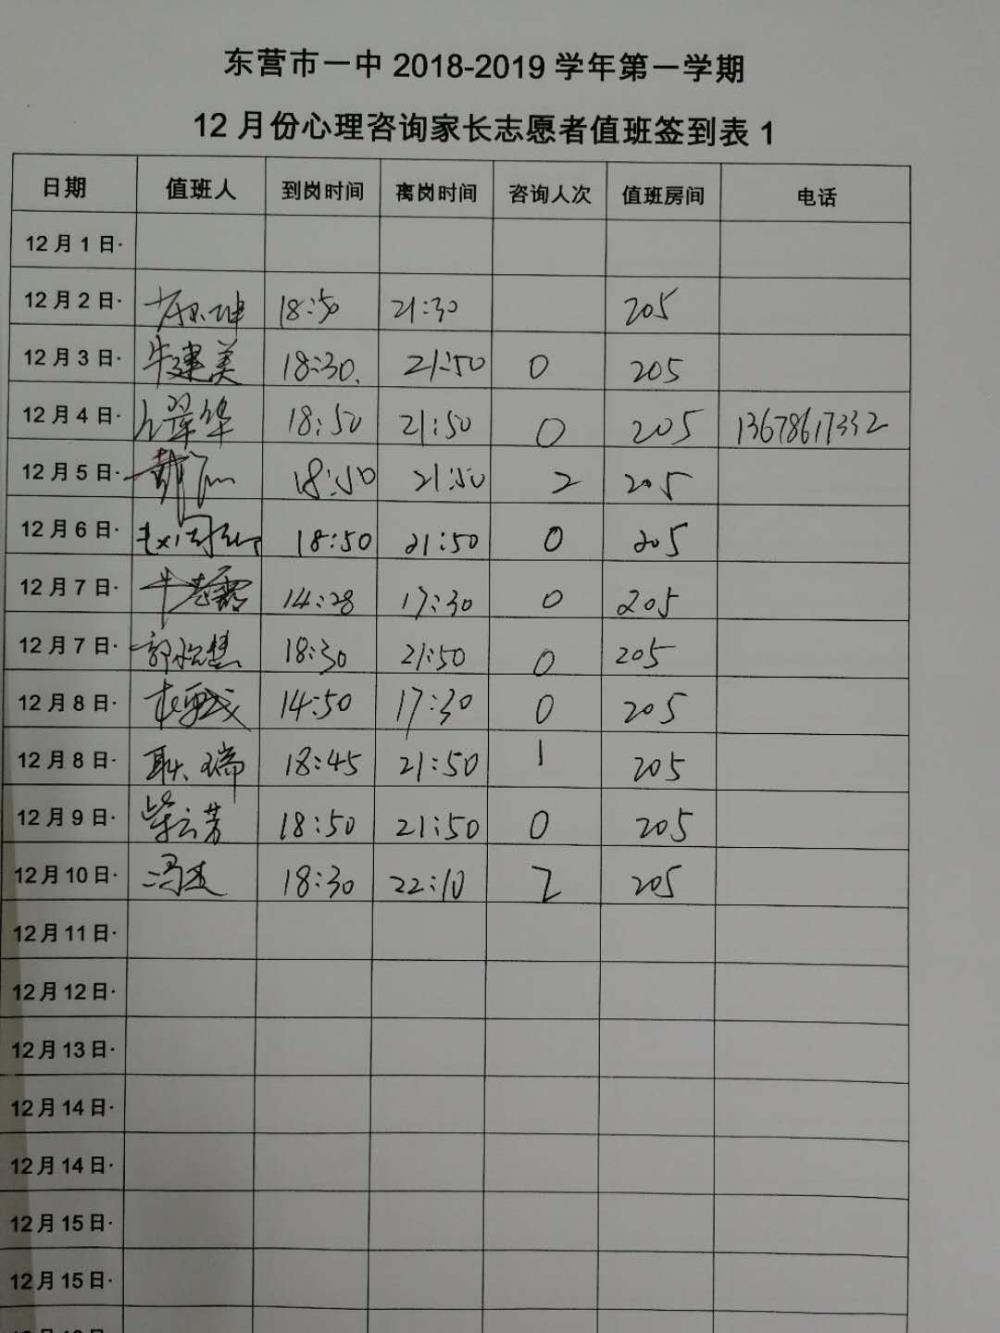 东营市一中 2018-2019 学年第一学期
12 月份心理咨询家长志愿者值班签到表 1
日期 值班人 到岗时间 离岗时间 咨询人次 值班房间 电话
12月1日·
12月2日· 18:50 21:30 205
12月3日· 牛建美 18:30. 21:50 0 205
12月4日· 18:50 21:50 0 205 13678617332
12月5日· 18:50 21:50 2 205
12月6日· 18:50 21:50 0 205
12月7日· 14:28 17:30 0 205
12月7日· 18:30 21:50 0 205
12月8日· 14:50 17:30 0 205
12月8日· 耿瑞 18:45 21:50 1 205
12月9日· 柴云芳 18:50 21:50 0 205
12月10日· 冯杰 18:30 22:10 2 205
12月11日·
12月12日·
12月13日·
12月14日·
12月14日·
12月15日·
12月15日·